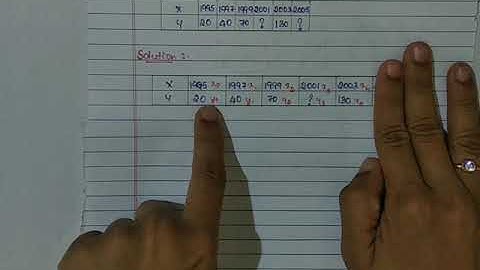 x 1995 1997 1999 2001 2003 2005
y 20 40 70 ? 130 ?
Solution :-
x 1995 x₀ 1997 x₁ 1999 x₂ 2001 x₃ 2003 x₄
y 20 y₀ 40 y₁ 70 y₂ ? y₃ 130 y₄